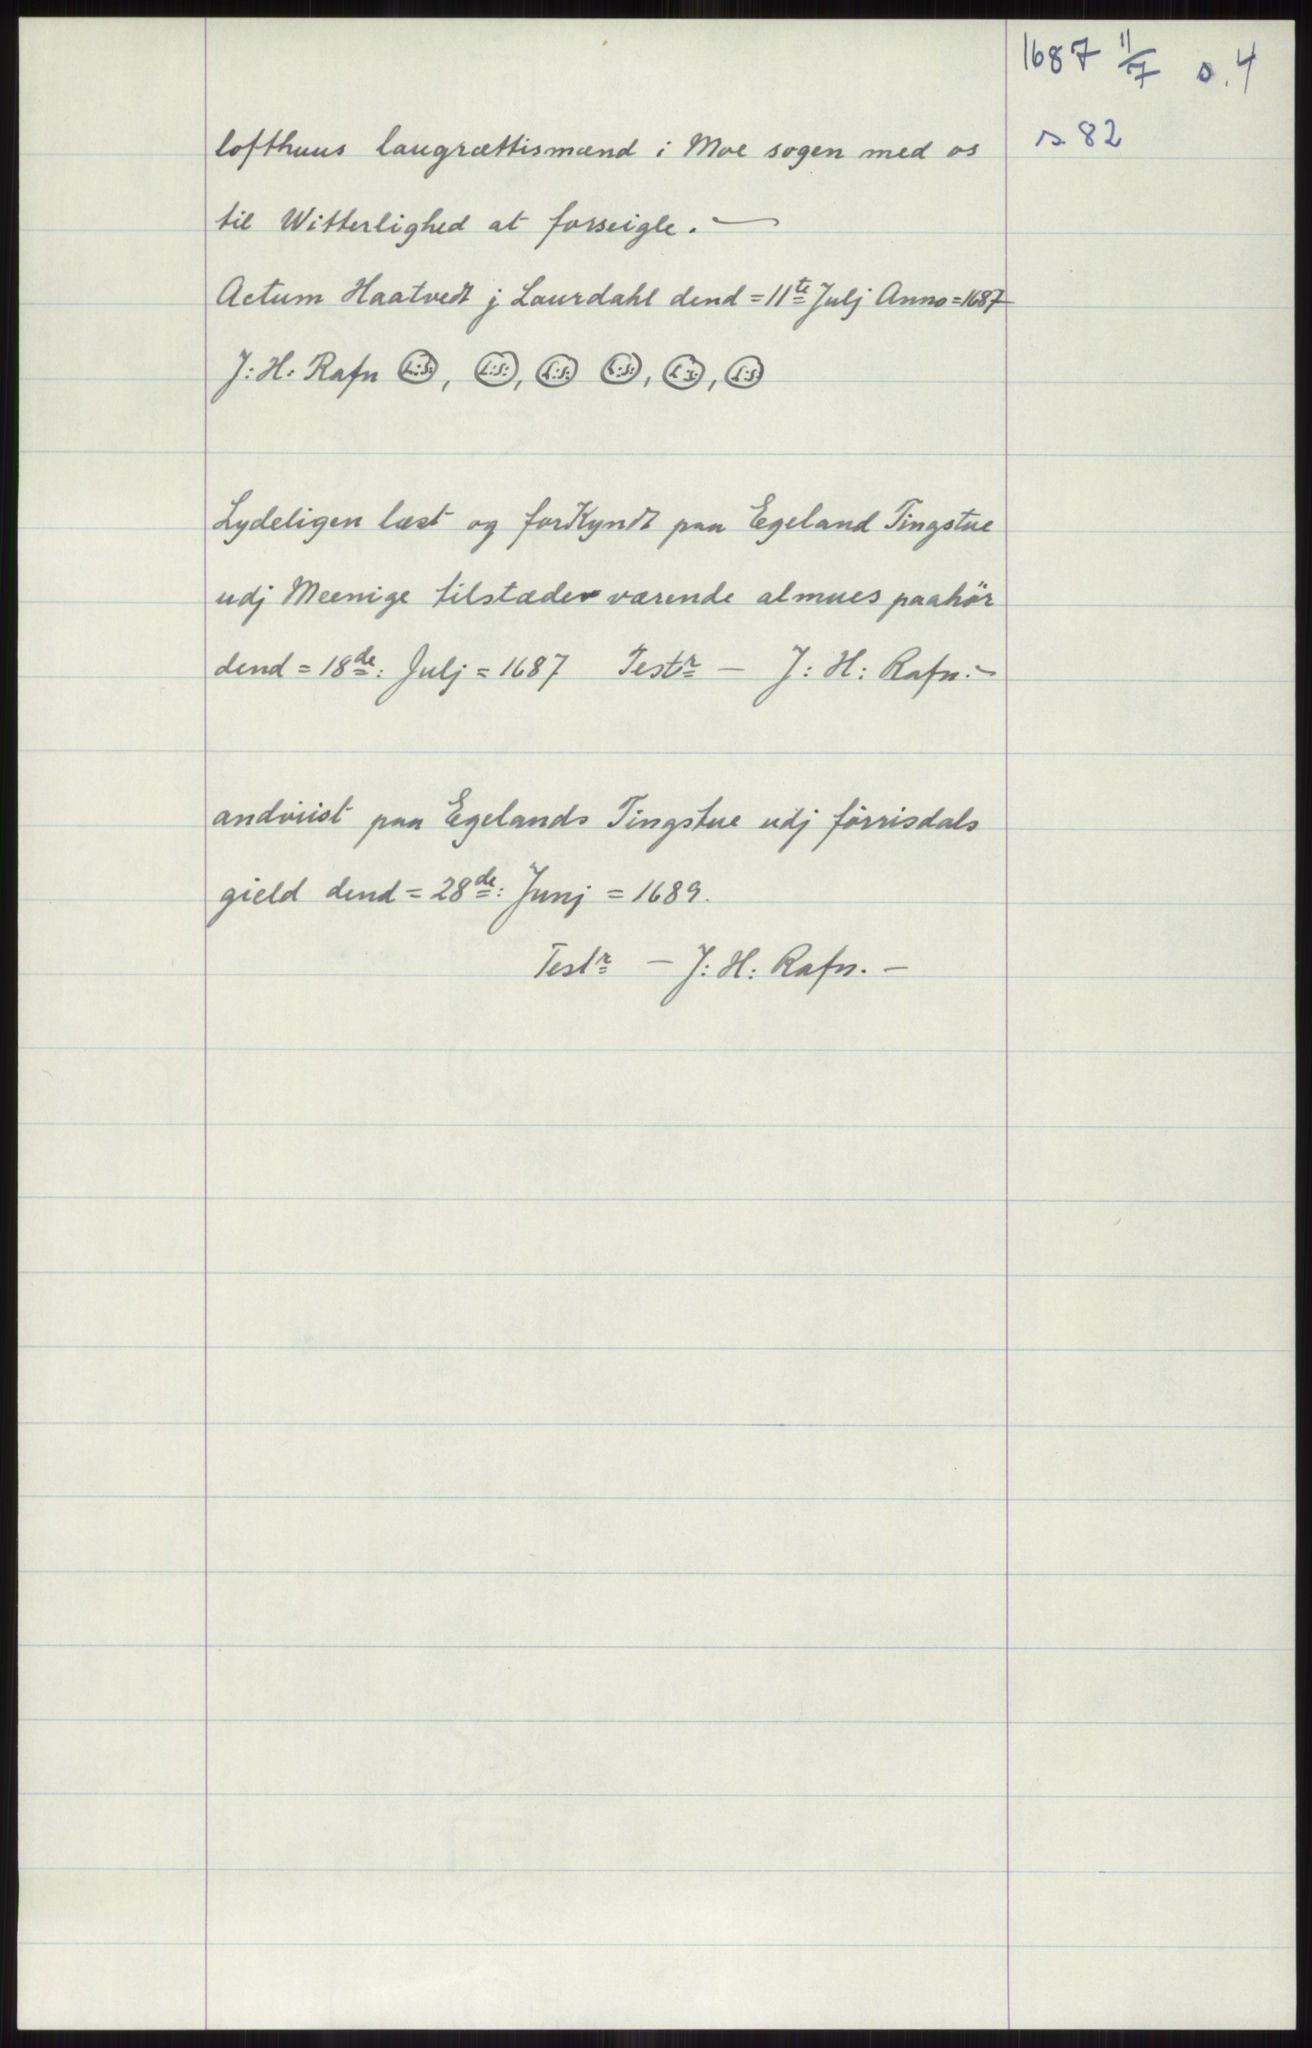 1687 11/7 s. 4
s. 82
lofthuus laugrættismænd i Moe sogen med os
til Witterlighed at forseigle. —
Actum Haatvedt j Laurdahl dend = 11te Julj Anno = 1687
J: H: Rafn L:S:, L:S:, L:S: L:S:, L:S:, L:S:
Lydeligen læst og forKyndt paa Egeland Tingstue
udj Meenige tilstæde værende almues paahör
dend = 18de: Julj = 1687 Testr — J: H: Rafn. —
andviist paa Egelands Tingstue udj förrisdals
gield dend = 28de: Junj = 1689.
Testr — J: H: Rafn. —